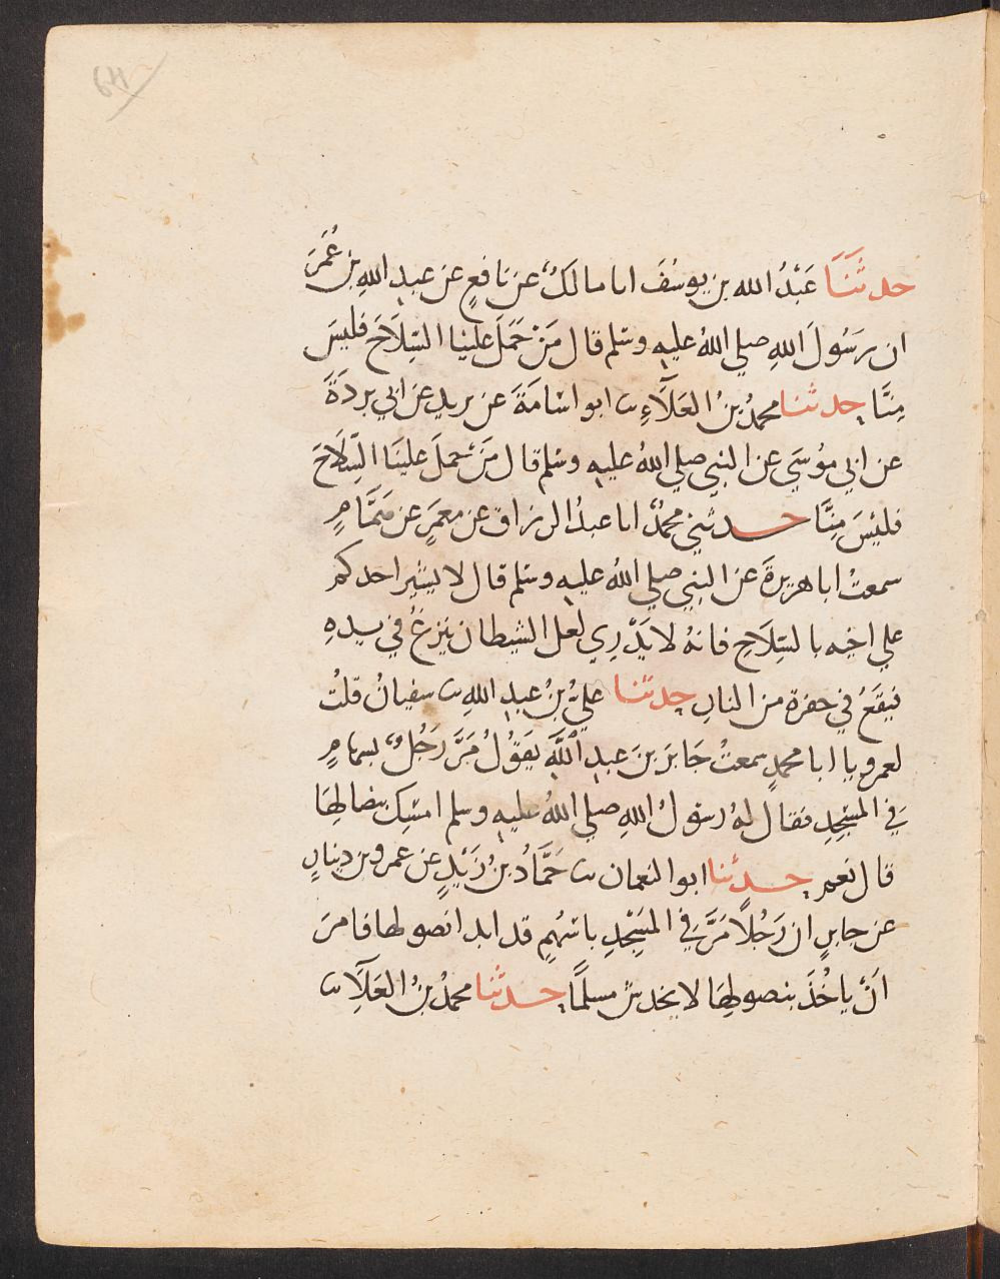 64
حدثَنَا عَبْدُ الله بن يوسُفَ انا مالكٌ عن نافعٍ عن عبدِ اللهِ بن عُمَرَ
ان رسُولَ اللهِ صلي اللهُ عليهِ وسَلم قال مَنْ حَمَلَ علينا السِّلَاحَ فليسَ
مِنَّا حدثنا محمدُ بنُ العَلَآءِ ثنا ابو اسَامَةَ عن بريدٍ عن ابي بردَةَ
عن ابي موُسَي عن النبي صلي اللهُ عليهِ وسَلم قال مَنْ حملَ علينَا السِّلَاحَ
فليْسَ مِنَّا حدثني محمدٌ انا عبدُ الرزاق عن معمَرٍ عن هَمَّامٍ
سمعتُ ابا هريرةَ عن النبِي صلي اللهُ عليهِ وسَلم قال لا يشير احدكم
علي اخيه بالسِّلَاحِ فانهُ لا يَدْرِي لعل الشيطان يَنزغُ في يدهِ
فيقَعُ في حفرة من النارِ حدثنا عليُّ بنُ عبدِ اللهِ ثنا سفيانُ قلتُ
لعمرو يا ابا محمدٍ سمعتُ جَابرَ بنَ عبدِ اللَّهِ يَقوُلُ مَرَّ رَجُلٌ بسهامٍ
فِي المَسْجِدِ فقال لهُ رسُولُ اللهِ صلي اللهُ عليهِ وسلم امسِك بنصالهَا
قال نَعم حدثنا ابوا النعمان ثنا حَمَّادُ بنُ زَيْدٍ عن عمرو بن دينارٍ
عن جابرٍ ان رَجُلًا مَرَّ فِي المَسْجِدِ باسْهُمٍ قد ابدا نصولها فامرَ
اَنْ ياخُذَ بنصولِهَا لا يخدشُ مسلمًا حدثنا محمدُ بنُ العَلَآءِ ثنا